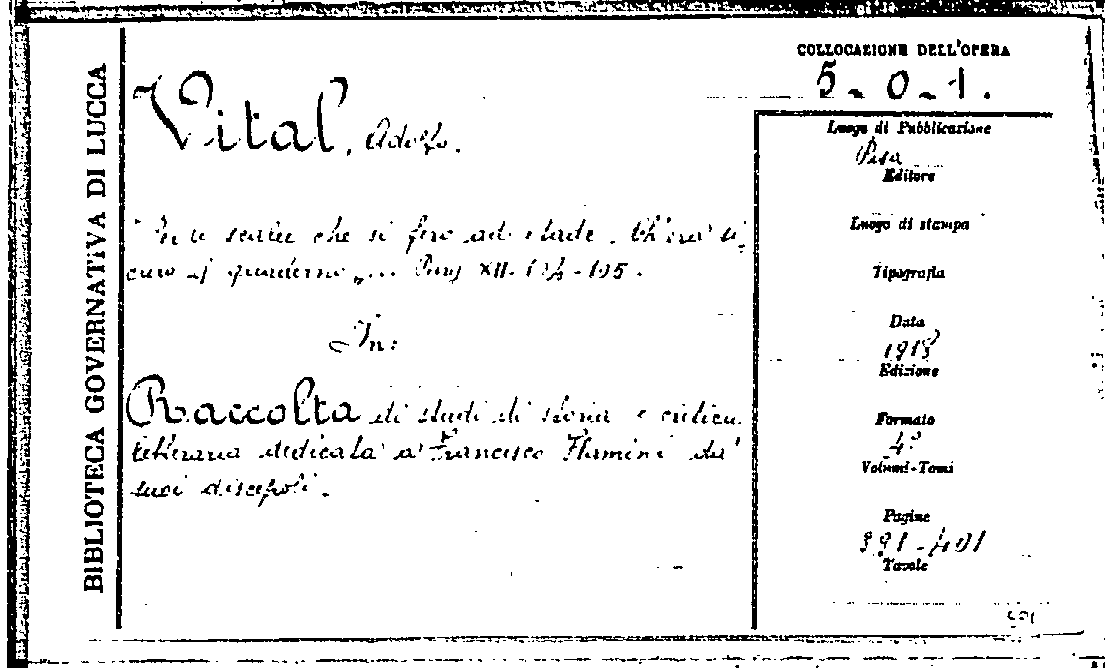 BIBLIOTECA GOVERNATIVA DI LUCCA
Vital, Adolfo.
scalee che si fero ad etade ch'era si-
curo il quaderno „ ... Purg XII. 104-105.
In:
Raccolta di studi di storia e critica
letteraria dedicata a Francesco Flamini da'
suoi discepoli.
COLLOCAZIONE DELL'OPERA
5-0-1.
Luogo di Pubblicazione
Pisa
Editore
Luogo di stampa
Tipografia
Data
1918
Edizione
Formato
4º
Volumi-Tomi
Pagine
391-401
Tavole